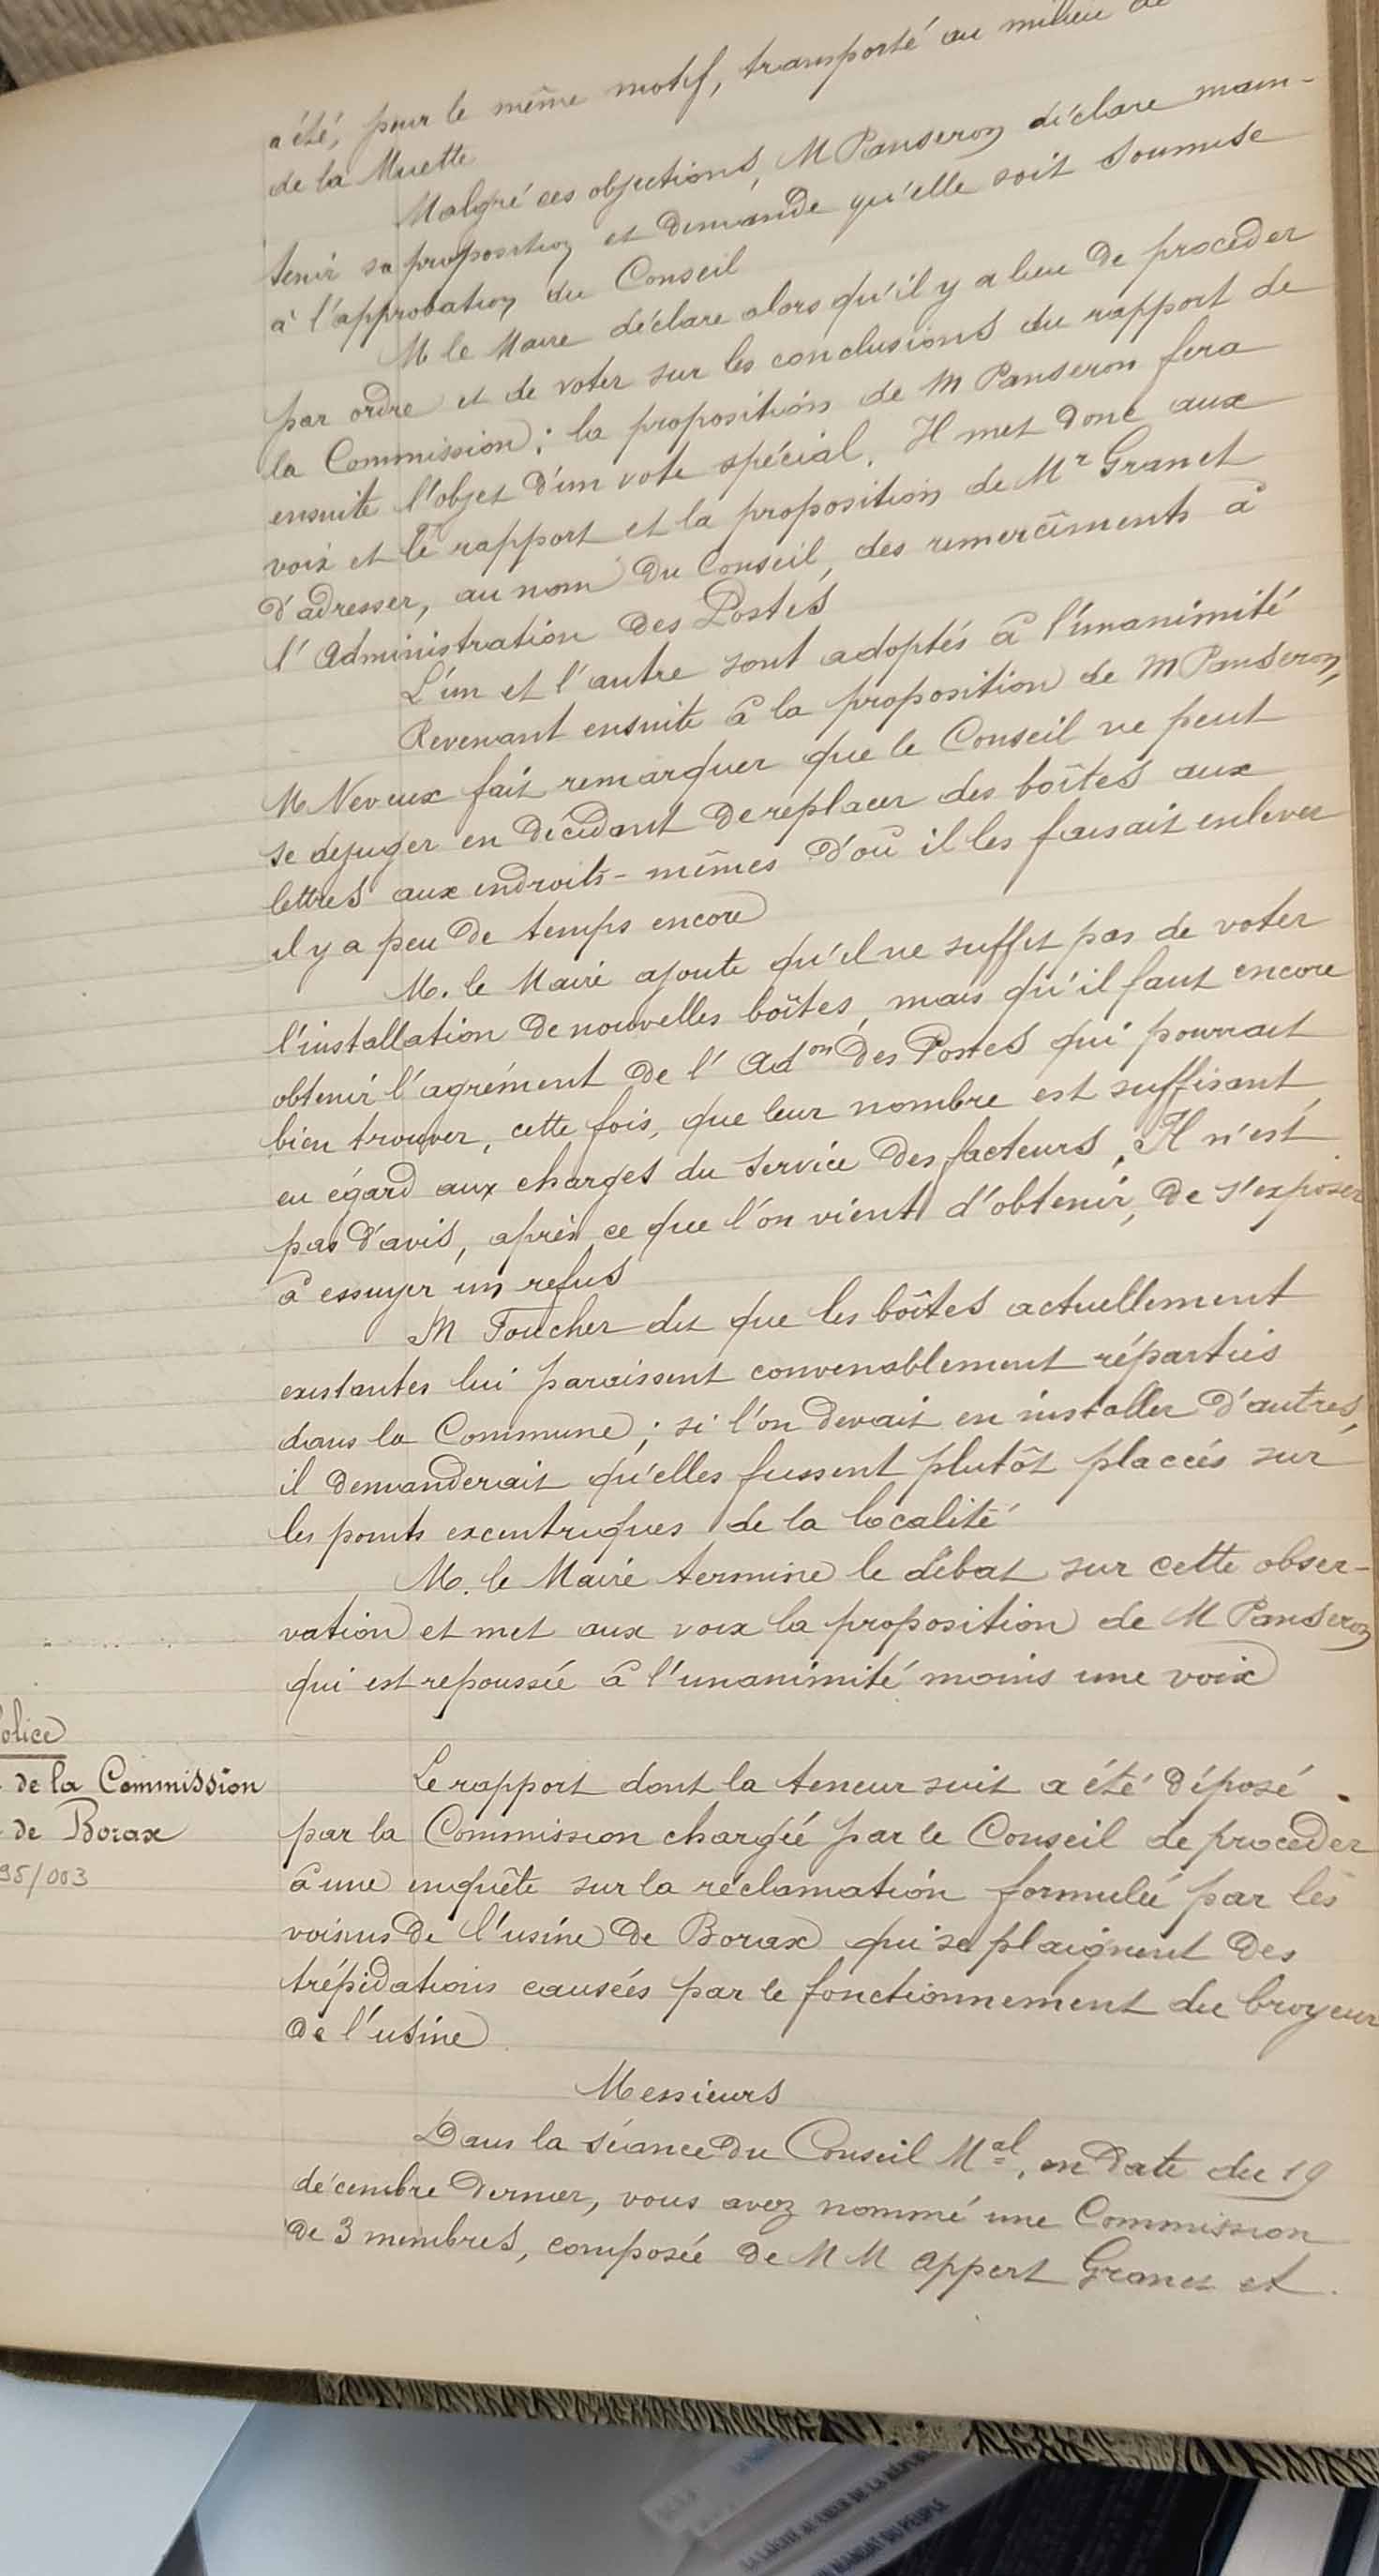 a été, pour le même motif, transporté au milieu de
de la Muette
Malgré ces objections, M Panseron déclare main-
tenir sa proposition et demande qu'elle soit soumise
à l'approbation du Conseil
M le Maire déclare alors qu'il y a lieu de procéder
par ordre et de voter sur les conclusions du rapport de
la Commission ; la proposition de M Panseron fera
ensuite l'objet d'un vote spécial. Il met donc aux
voix et le rapport et la proposition de Mr Granet
d'adresser, au nom du Conseil, des remercîments à
l'Administration des Postes
L'un et l'autre sont adoptés à l'unanimité
Revenant ensuite à la proposition de M Panseron,
M Neveux fait remarquer que le Conseil ne peut
se déjuger en décidant de replacer des boîtes aux
lettres aux endroits-mêmes d'où il les faisait enlever
il y a peu de temps encore
M. le Maire ajoute qu'il ne suffit pas de voter
l'installation de nouvelles boîtes, mais qu'il faut encore
obtenir l'agrément de l'Adon des Postes qui pourrait
bien trouver, cette fois, que leur nombre est suffisant,
eu égard aux charges du service des facteurs. Il n'est
pas d'avis, après ce que l'on vient d'obtenir, de s'exposer
à essuyer un refus
M Foucher dit que les boîtes actuellement
existantes lui paraissent convenablement réparties
dans la Commune ; si l'on devait en installer d'autres,
il demanderait qu'elles fussent plutôt placées sur
les points excentriques de la localité
M. le Maire termine le débat sur cette obser-
vation et met aux voix la proposition de M Panseron
qui est repoussée à l'unanimité moins une voix
olice
de la Commission
de Borax
95/003
Le rapport dont la teneur suit a été déposé
par la Commission chargée par le Conseil de procéder
à une enquête sur la réclamation formulée par les
voisins de l'usine de Borax qui se plaignent des
trépidations causées par le fonctionnement du broyeur
de l'usine
Messieurs
Dans la séance du Conseil Mal, en date du 19
décembre dernier, vous avez nommé une Commission
de 3 membres, composée de M M Appert Granet et
LA LAÏCITÉ AU CŒUR DE LA RÉPU
MANDAT DU PEUPLE